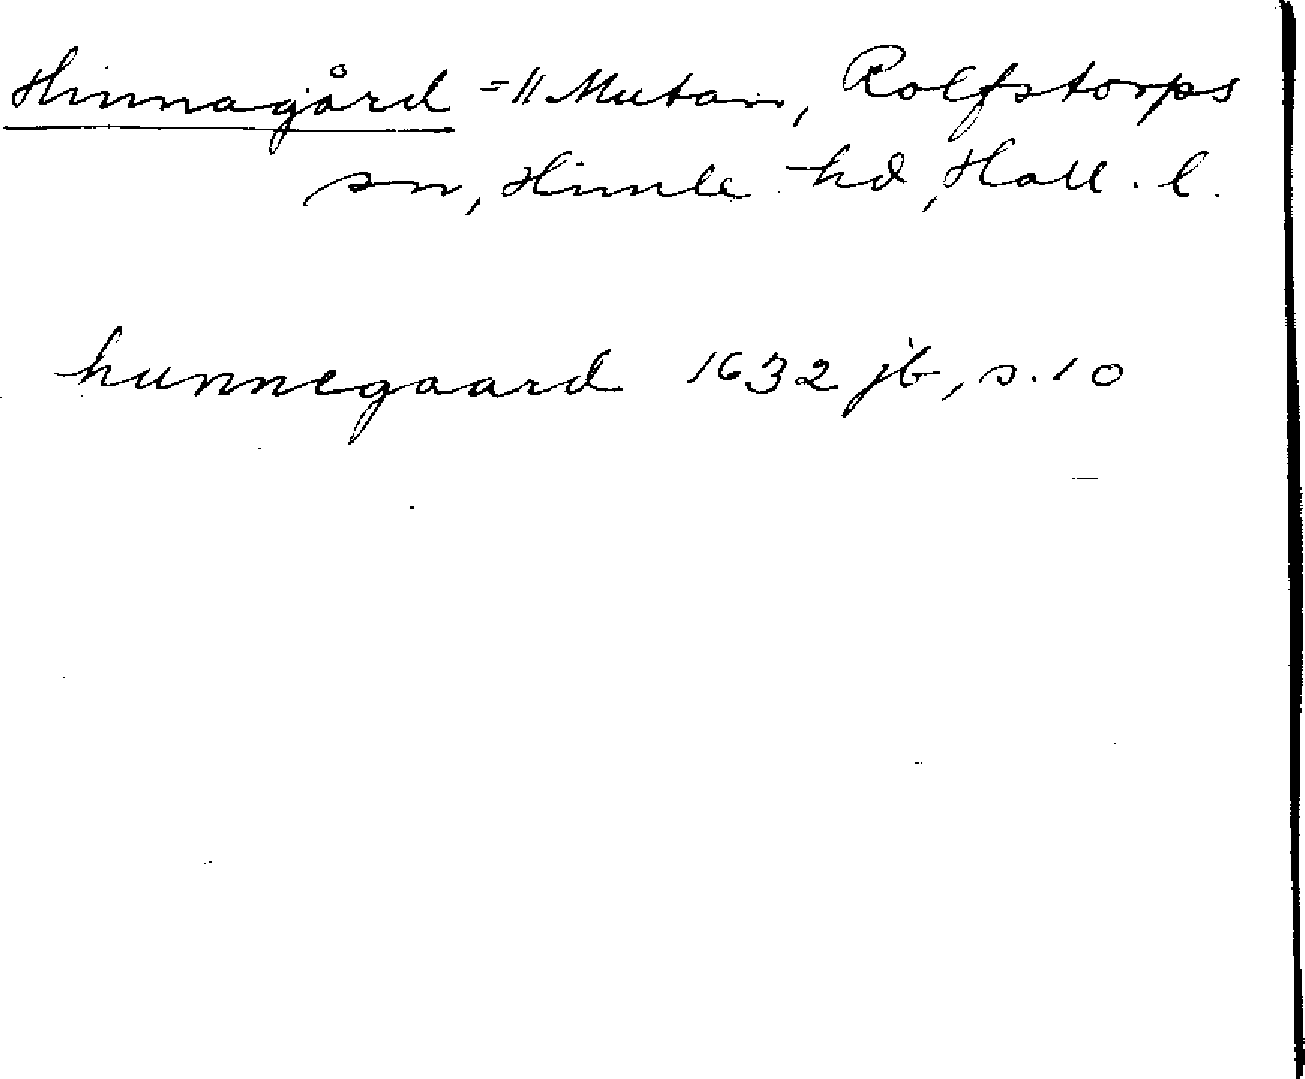 Hinnagård =|| Mutan, Rolfstorps
sn, Himle hd, Hall. l.
hunnegaard 1632 jb, s. 10